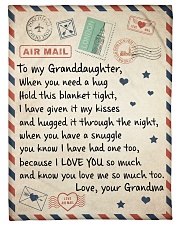 AIR MAIL
To my Granddaughter,
When you need a hug
Hold this blanket tight,
I have given it my kisses
and hugged it through the night,
when you have a snuggle
you know I have had one too,
because I LOVE YOU so much
and know you love me so much too.
Love, your Grandma